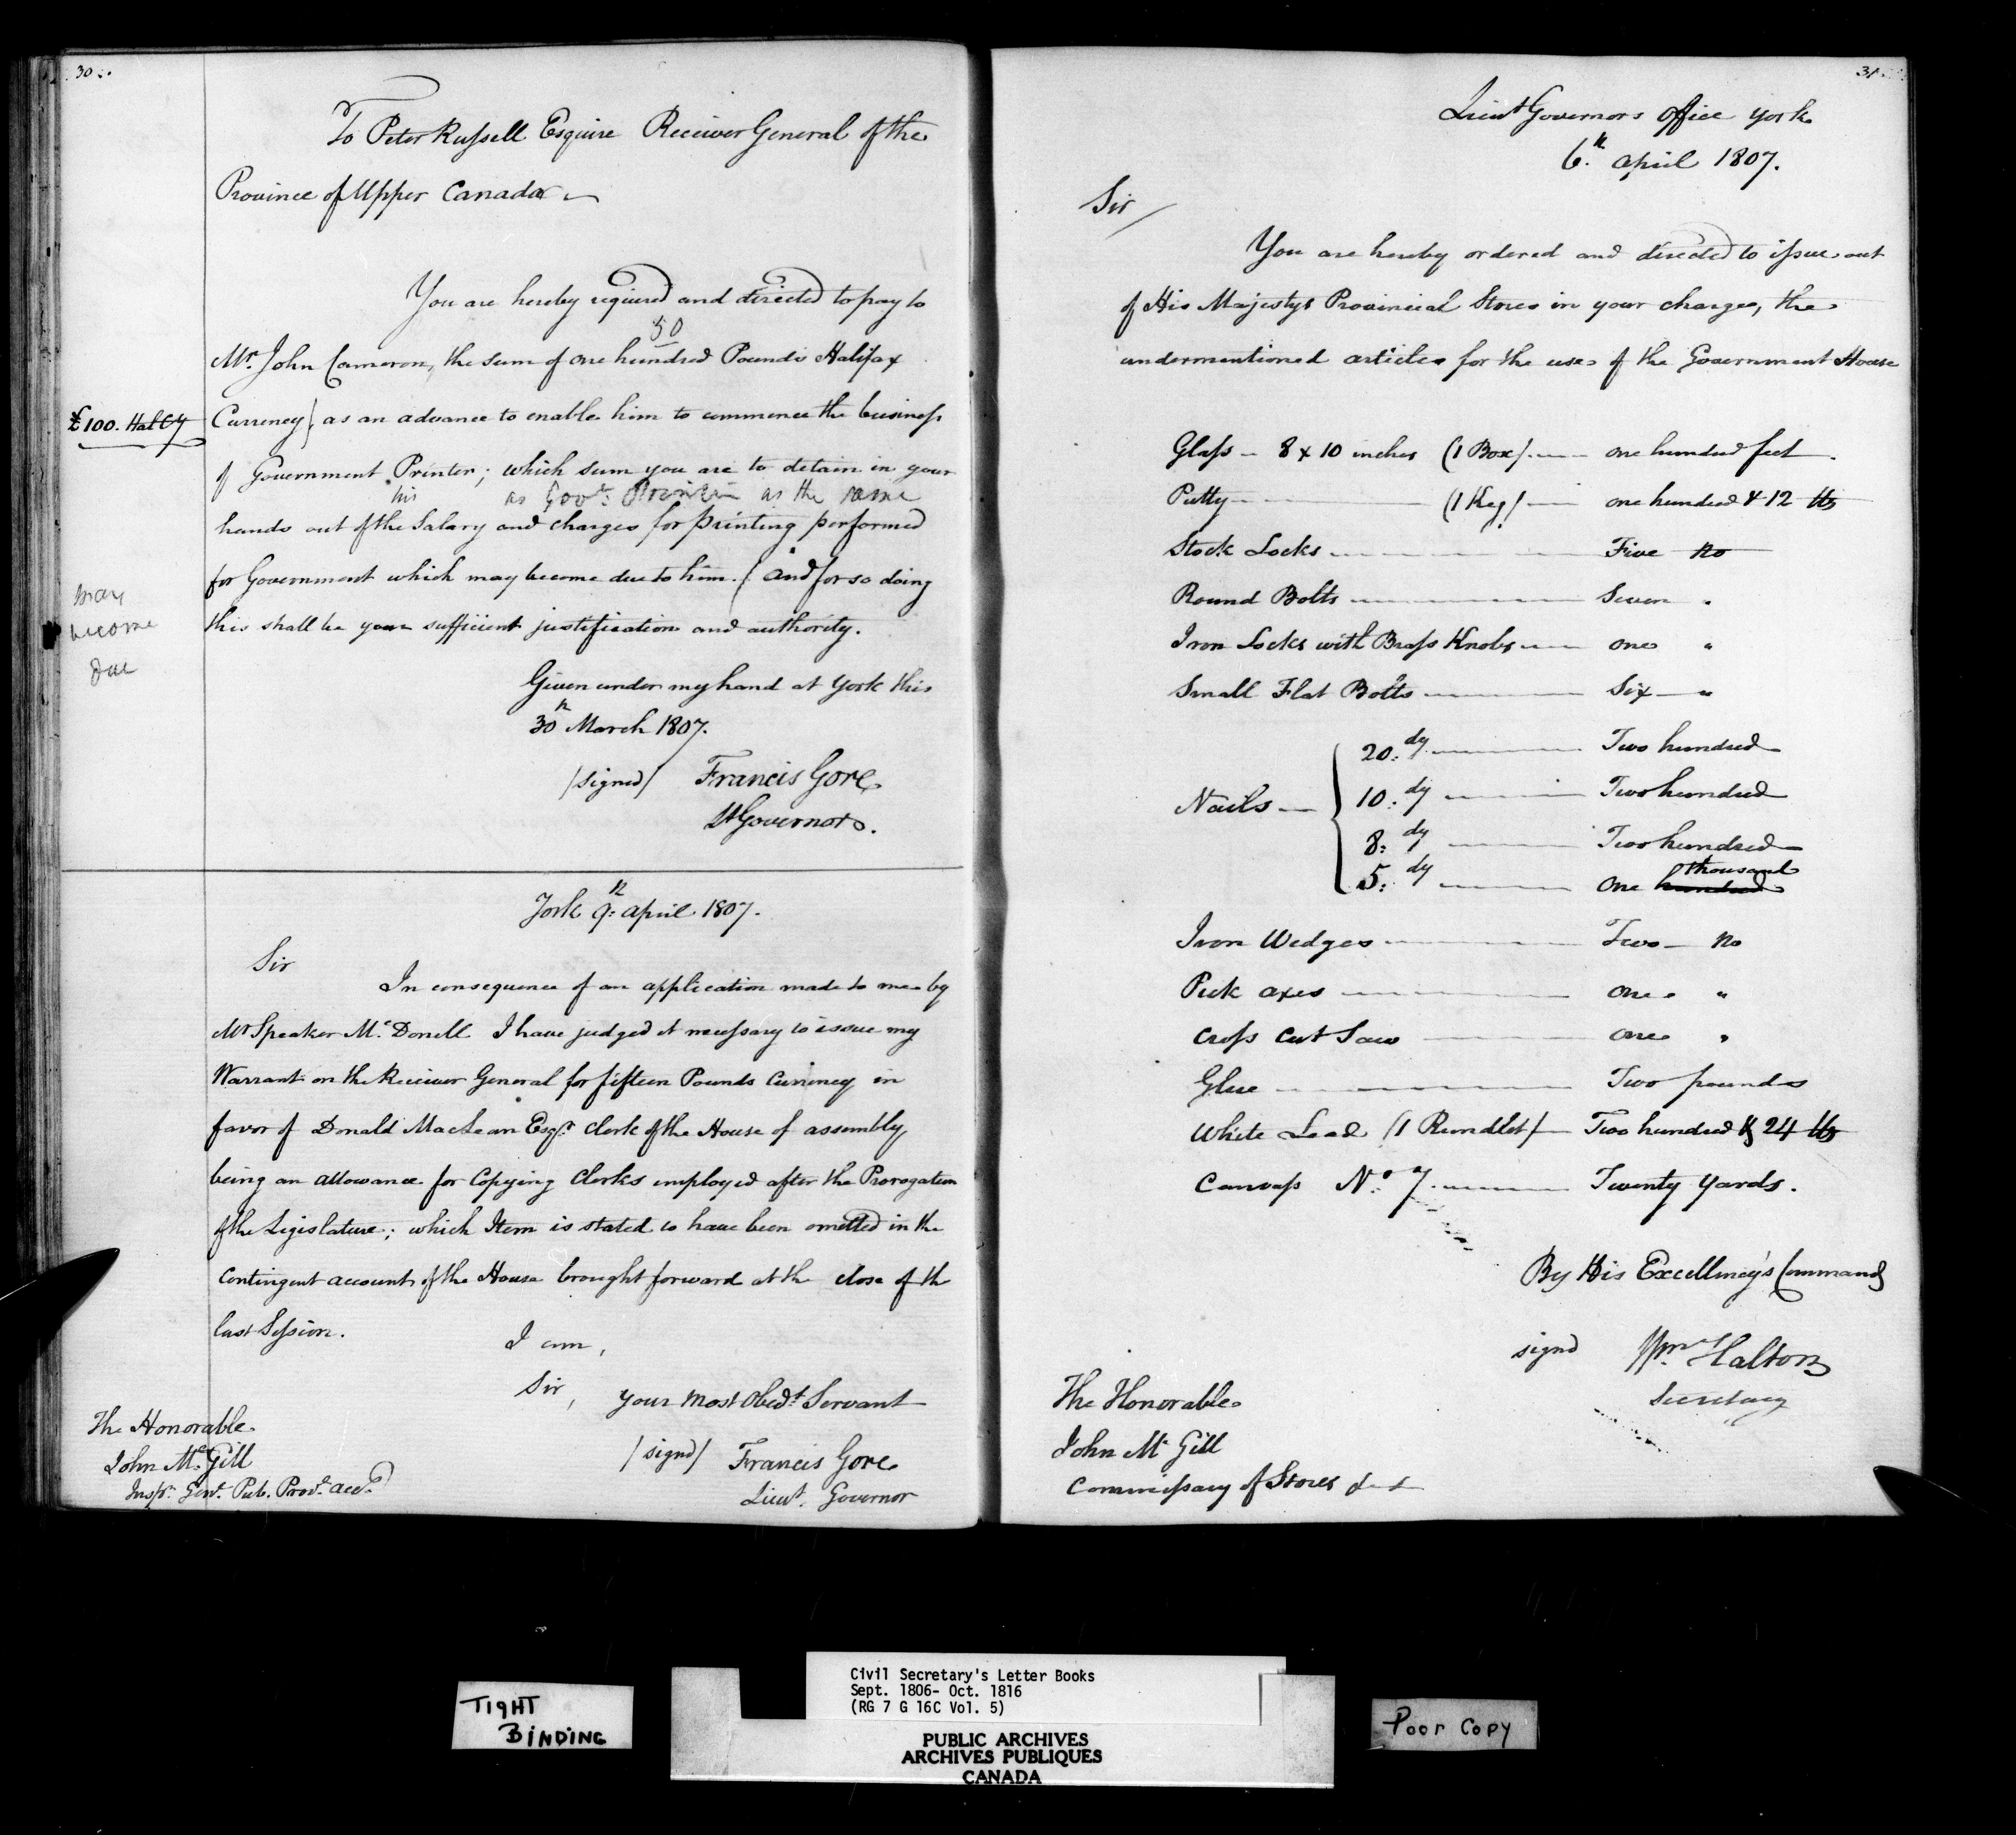 30.
To Peter Russell Esquire Receiver General of the
Province of Upper Canada
You are hereby required and directed to pay to
50
Mr. John Cameron, the sum of one hundred Pounds Halifax
£100. Hal Cy
Currency) as an advance to enable him to commence the business
of Government Printer; which sum you are to detain in your
his as Govt. Printer as the same
hands out of the Salary and charges for printing performed
for Government which may become due to him. (And for so doing
may
become
due
this shall be your sufficient justification and authority.
Given under my hand at York this
30th March 1807.
/signed/ Francis Gore
Lt Governor.
York 9th April 1807.
Sir
In consequence of an application made to me by
Mr Speaker McDonell I have judged it necessary to issue my
Warrant on the Receiver General for fifteen Pounds Currency in
favor of Donald MacLean Esqr. Clerk of the House of assembly,
being an allowance for Copying Clerks employed after the Prorogation
of the Legislature; which Item is stated to have been omitted in the
Contingent account of the House brought forward at the close of the
last Session.
I am,
Sir,
your most Obedt Servant
/signd/ Francis Gore
Lieut. Governor
The Honorable
John McGill
Inspr. Genl. Pub. Provl. Acct.
31
Lieut Governors Office York
6th April 1807.
Sir/
You are hereby ordered and directed to issue out
of His Majestys Provincial Stores in your charge, the
undermentioned articles for the use of the Government House
Glass - 8 x 10 inches (1 Box) one hundred feet.
Putty (1 Keg) one hundred & 12 lbs
Stock Locks Five no
Round Bolts Seven "
Iron Locks with Brass Knobs one "
Small Flat Bolts Six "
Nails { 20.dy Two hundred
10.dy Two hundred
8.dy Two hundred
thousand
5.dy one hundred
Iron Wedges Two no
Pick axes one "
Cross Cut Saw one "
Glue Two pounds
White Lead (1 Rundlet) Two hundred & 24 lbs
Canvass No. 7. Twenty Yards.
By His Excellency's Command
signd Wm. Halton
Secretary
The Honorable
John McGill
Commissary of Stores &c &c
TIGHT
BINDING
Civil Secretary's Letter Books
Sept. 1806- Oct. 1816
(RG 7 G 16C Vol. 5)
PUBLIC ARCHIVES
ARCHIVES PUBLIQUES
CANADA
Poor Copy